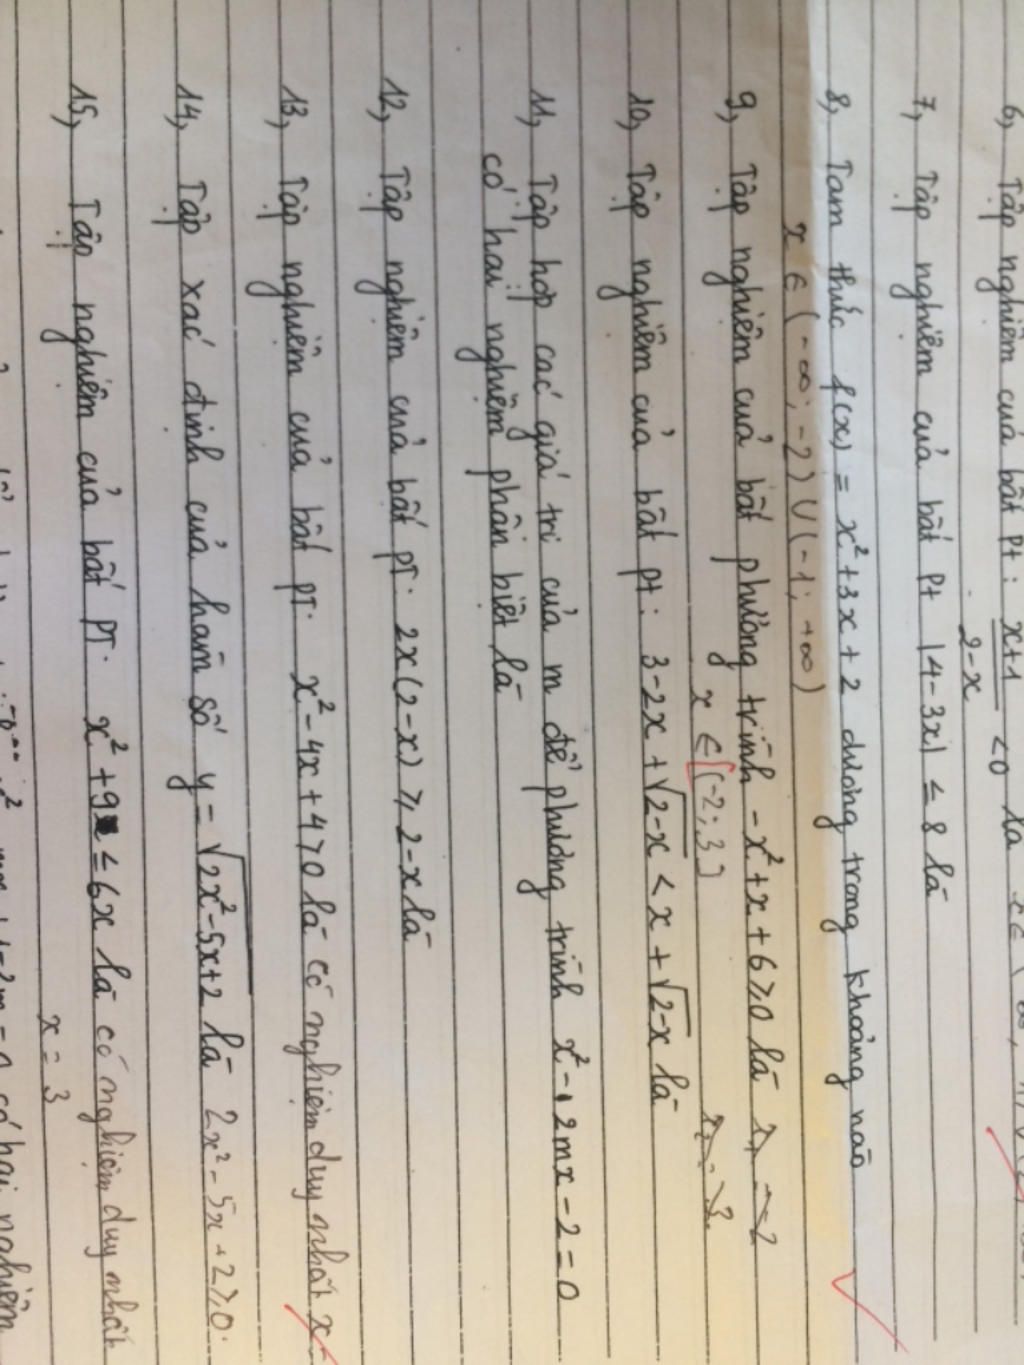 6, Tập nghiệm của bất pt: x+1/2-x < 0 là
7, Tập nghiệm của bất pt |4-3x| ≤ 8 là
8, Tam thức f(x) = x²+3x+2 dương trong khoảng nào
x ∈ (-∞; -2) ∪ (-1; +∞)
9, Tập nghiệm của bất phương trình -x²+x+6 ≥ 0 là
x ∈ [(-2; 3]
10, Tập nghiệm của bất pt: 3-2x+√2-x < x+√2-x là
11, Tập hợp các giá trị của m để phương trình x²-2mx-2=0
có hai nghiệm phân biệt là
12, Tập nghiệm của bất pt: 2x(2-x) ≥ 2-x là
13, Tập nghiệm của bất pt: x²-4x+4>0 là có nghiệm duy nhất x
14, Tập xác định của hàm số y = √2x²-5x+2 là 2x²-5x+2≥0.
15, Tập nghiệm của bất pt: x²+9 ≤ 6x là có nghiệm duy nhất
x = 3
có hai nghiệm